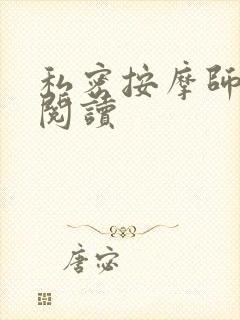 私密按摩師
閱讀
唐宓